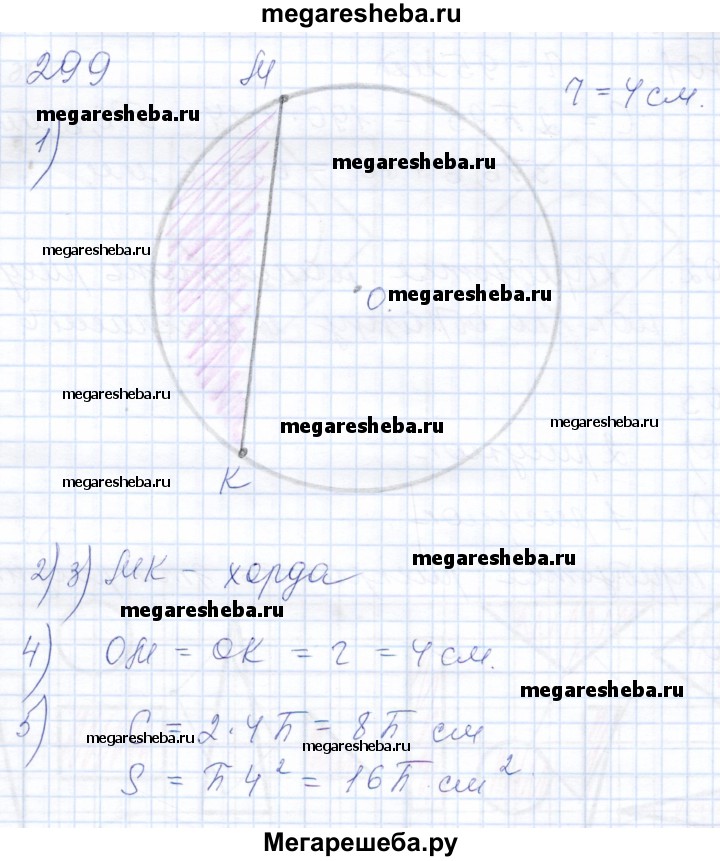 megaresheba.ru
299
М
r = 4 см.
megaresheba.ru
1)
megaresheba.ru
megaresheba.ru
O.
megaresheba.ru
megaresheba.ru
megaresheba.ru
megaresheba.ru
К
megaresheba.ru
2) 3) МК – хорда
megaresheba.ru
megaresheba.ru
4) ОМ = ОК = r = 4 см.
megaresheba.ru
5) C = 2·4π = 8π см
megaresheba.ru
megaresheba.ru
S = π 4² = 16π см².
Мегарешеба.ру